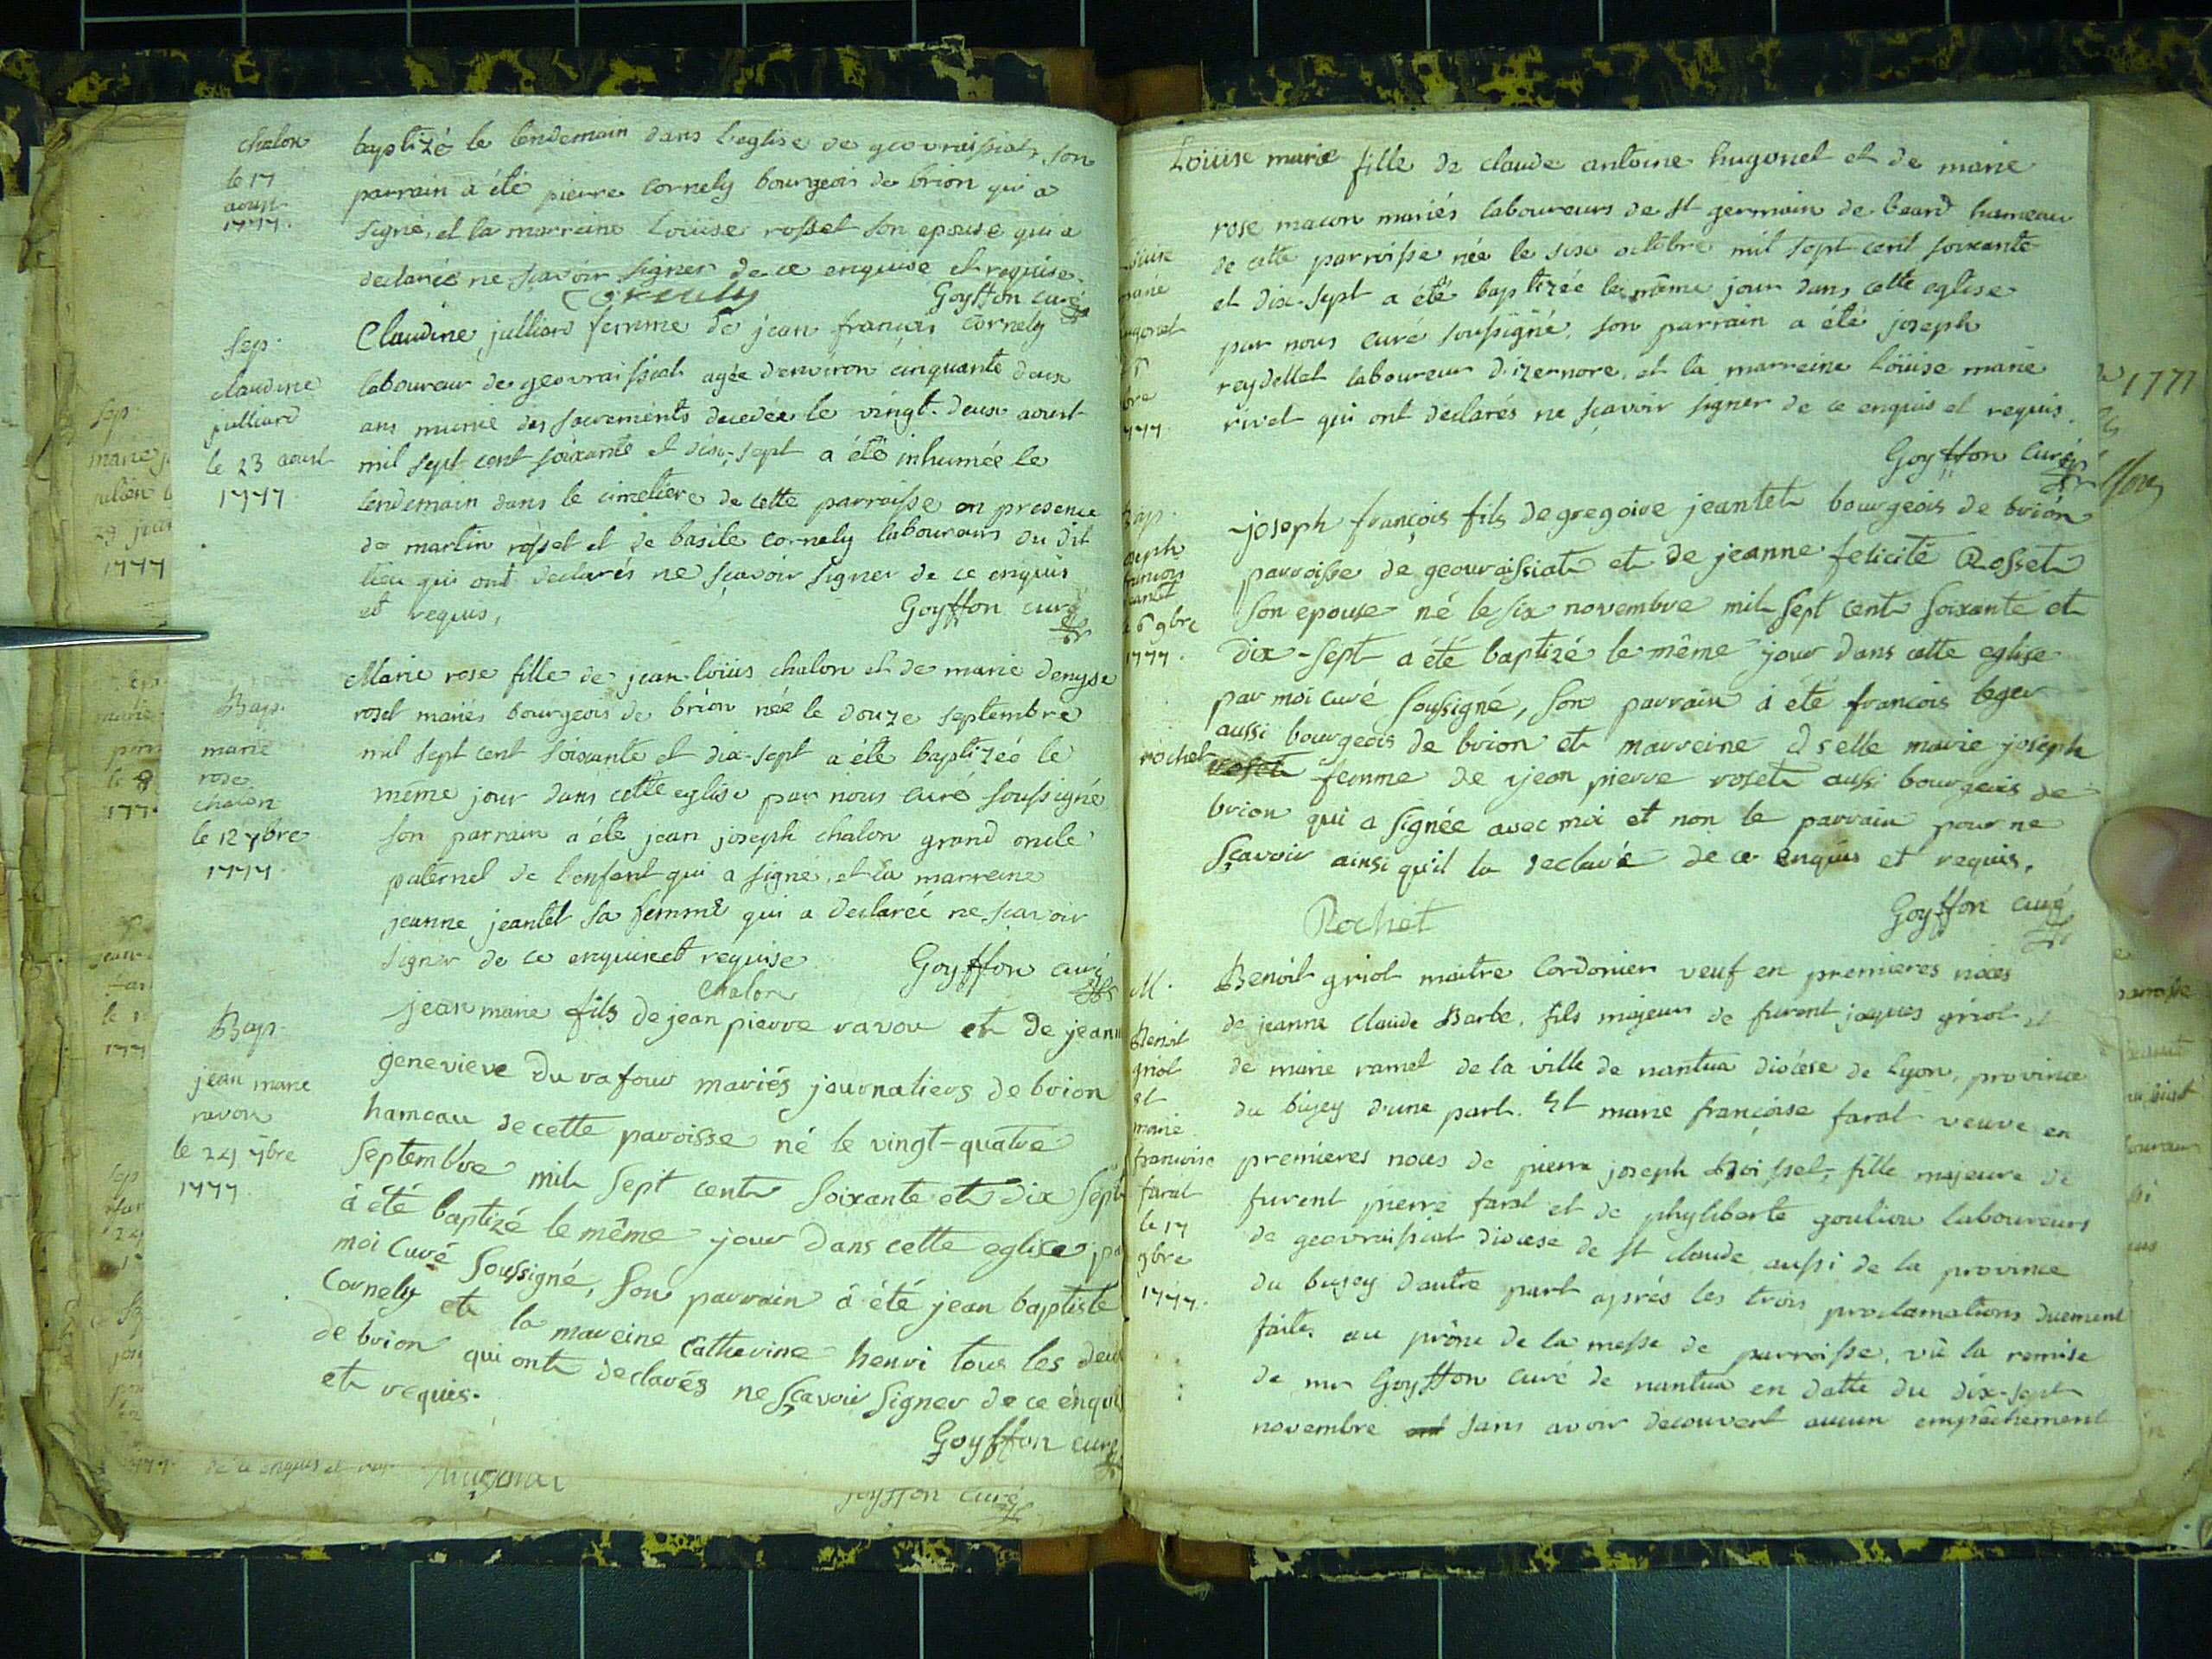 chalon
le 17
aoust
1777.
baptizé le lendemain dans l'eglise de geovraissiat, son
parrain a été pierre Cornely bourgeois de brion qui a
signé, et la marreine Loüise rosset son epouse qui a
declarée ne sçavoir signer de ce enquise et requise.
Cornely Goyffon curé
Sep.
claudine
julliard
le 23 aoust
1777.
Claudine julliard femme de jean françois Cornely
laboureur de geovraissiat agée d'environ cinquante deux
ans munie des sacrements decedée le vingt-deux aoust
mil sept cent soixante et dix-sept a été inhumée le
lendemain dans le cimetiere de cette parroisse en presence
de martin rosset et de basile cornely laboureurs du dit
lieu qui ont declarés ne sçavoir signer de ce enquis
et requis,
Goyffon curé
Bap.
marie
rose
chalon
le 12 7bre
1777.
Marie rose fille de jean-loüis chalon et de marie denyse
roset mariés bourgeois de brion née le douze septembre
mil sept cent soixante et dix-sept a été baptizée le
même jour dans cette eglise par nous curé soussigné
son parrain a été jean joseph chalon grand oncle
paternel de l'enfant qui a signé, et la marreine
jeanne jeantet sa femme qui a declarée ne sçavoir
signer de ce enquise et requise
Chalon Goyffon curé
Bap.
jean marie
ravou
le 24 7bre
1777.
jean marie fils de jean pierre ravou et de jeann
genevieve Du rafour mariés journaliers de brion
hameau de cette paroisse né le vingt-quatre
septembre mil sept cent soixante et dix sept
à été baptizé le même jour dans cette eglise pa
moi Curé soussigné, son parrain à été jean baptiste
Cornely et la mareine Catherine henri tous les deux
de brion qui ont declarés ne sçavoir signer de ce enqui
et requis.
Goyffon curé
de ce enquis et req
Goyffon curé
Loüise
marie
hugonet
bre
1777.
Loüise marie fille de claude antoine hugonet et de marie
rose macon mariés laboureurs de st germain de beard hameau
de cette parroisse née le six octobre mil sept cent soixante
et dix-sept a été baptizée le même jour dans cette eglise
par nous curé soussigné, son parrain a été joseph
reydellet laboureur d'izernore, et la marreine Loüise marie
rivet qui ont declarés ne sçavoir signer de ce enquis et requis.
Goyffon Curé
Bap.
joseph
françois
jeantet
6 9bre
1777.
joseph françois fils de gregoire jeantet bourgeois de brion
parroisse de geovraissiat et de jeanne felicité Rosset
son epouse né le six novembre mil sept cent soixante et
dix-sept a été baptizé le même jour dans cette eglise
par moi curé soussigné, son parrain à été françois leger
aussi bourgeois de brion et marreine dselle marie joseph
rochet roset femme de jean pierre roset aussi bourgeois de
brion qui a signée avec moi et non le parrain pour ne
sçavoir ainsi qu'il la declaré de ce enquis et requis.
Rochet Goyffon curé
M.
Benoit
griot
et
marie
francoise
farat
le 17
9bre
1777.
Benoit griot maitre Cordonier veuf en premieres nôces
de jeanne claude Barbe, fils majeur de furent jaques griot et
de marie ramel de la ville de nantua diocèse de Lyon, province
du bugey d'une part. Et marie françoise farat veuve en
premieres noces de pierre joseph Boissel, fille majeure de
furent pierre farat et de phyliberte gouliou laboureurs
de geovraissiat diocese de st claude aussi de la province
du bugey d'autre part aprés les trois proclamations duement
faites au prône de la messe de parroisse, vû la remise
de mr Goyffon curé de nantua en datte du dix-sept
novembre sans avoir decouvert aucun empêchement